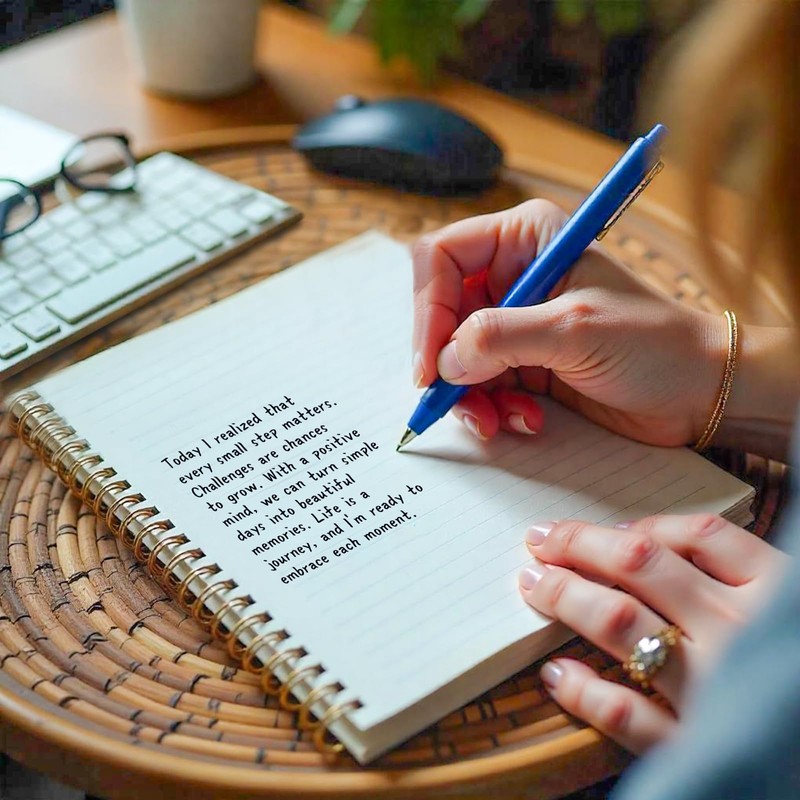 Today I realized that
every small step matters.
Challenges are chances
to grow. With a positive
mind, we can turn simple
days into beautiful
memories. Life is a
journey, and I'm ready to
embrace each moment.